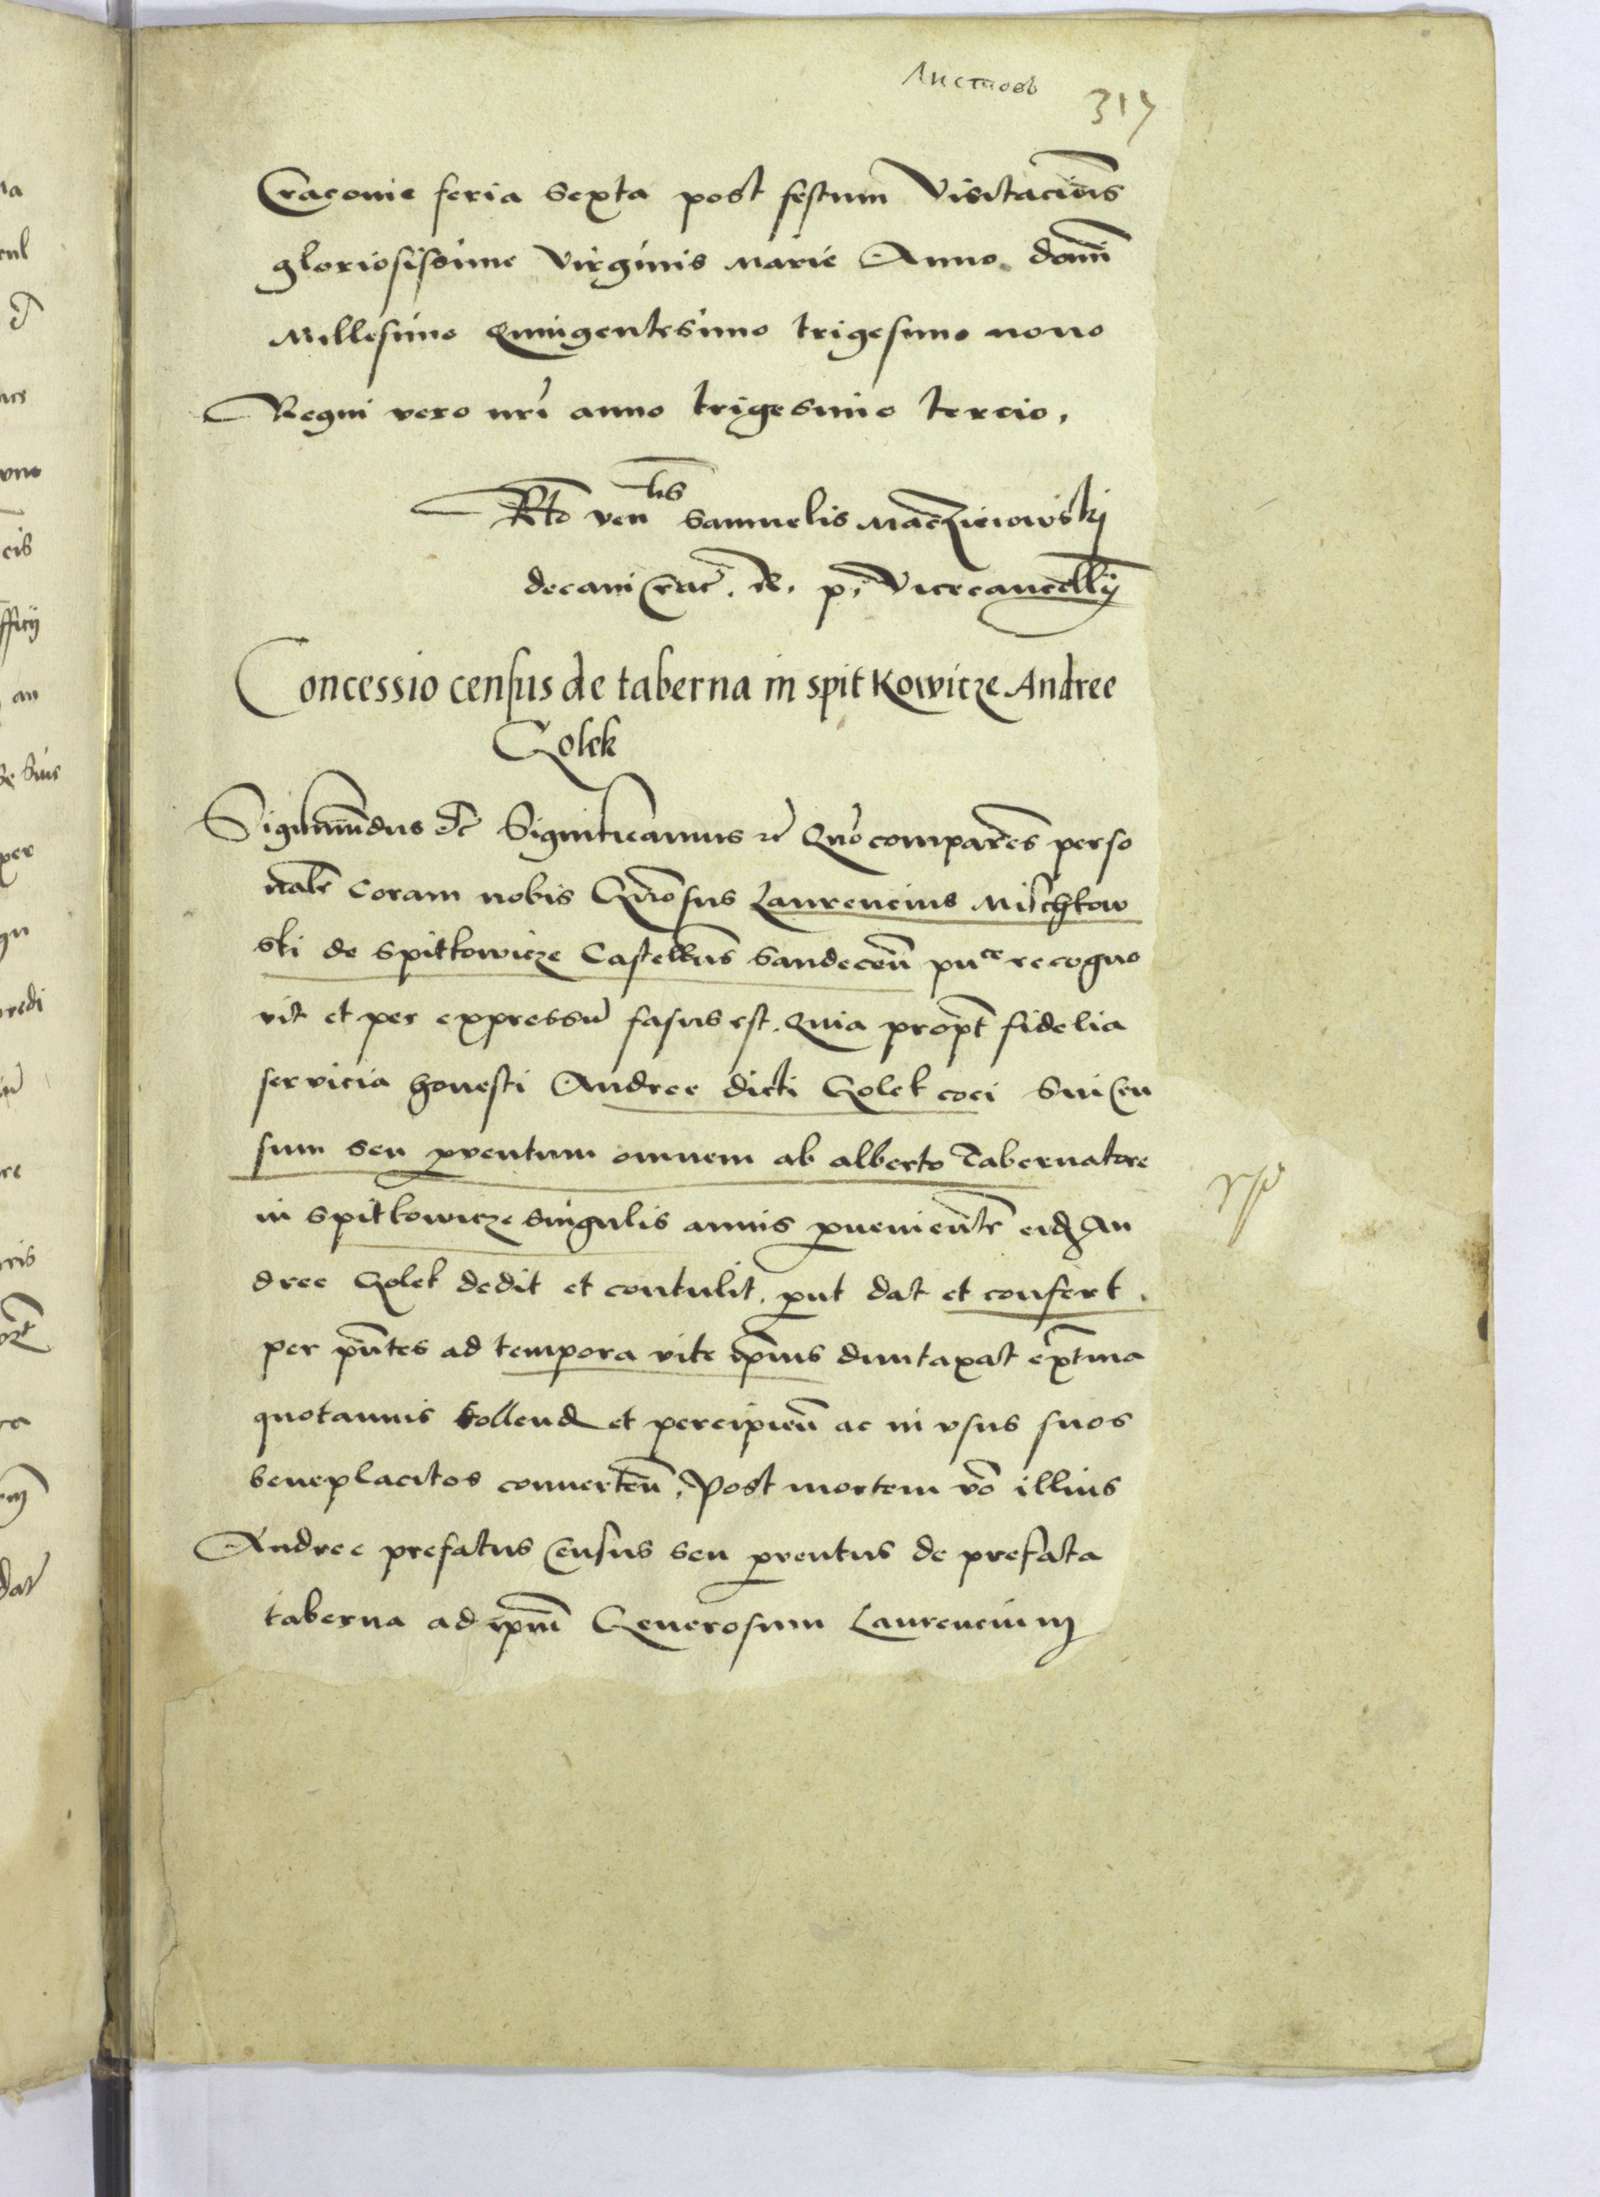 Листовъ
317
Cracovie feria Sexta post festum Visitaciois
gloriosissime Virginis Marie Anno domi
Millesimo Quingentesimo trigesimo nono
Regni vero nri anno trigesimo tercio.
Rlo ven lis Samuelis Maczieiowskij
decani Crac. R. p. Vicecancellij
Concessio census de taberna in spitkowicze Andree
Golek
Sigismundus etc Significamus etc Quo comparens perso
nalr coram nobis Gnosus Laurencius Mischkow
ski de spitkowicze Castellnus Sandecen pnce recogno
vit et per expressu fassus est. Quia propt fidelia
servicia honesti Andree dicti Golek coci sui Cen
sum seu pventum omnem ab alberto Tabernatore
in spitkowicze singulis annis pvenientr eidz An
dree Golek dedit et contulit, put dat et confert.
per pntes ad tempora vite ipius duntaxat extma
quotannis tollend et percipien ac in usus suos
beneplacitos conuerten. Post mortem vo illius
Andree prefatus Census seu pventus de prefata
taberna ad ipm Generosum Laurencium